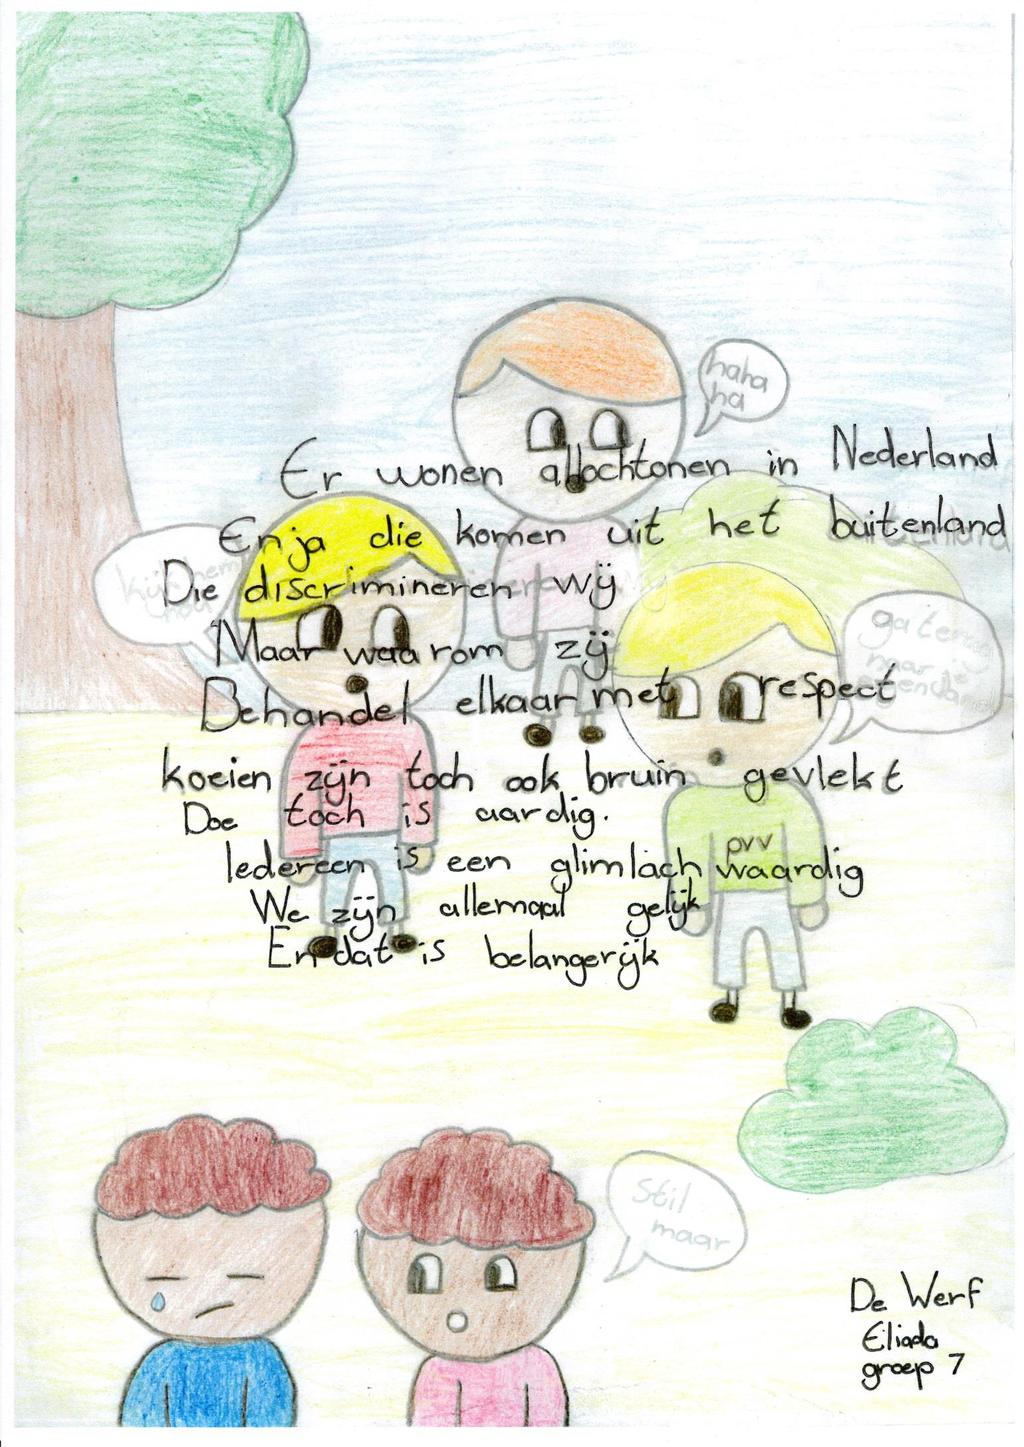 haha
ha
Er wonen allochtonen in Nederland
En ja die komen uit het buitenland
Die discrimineren wij
Maar waarom zij
Behandel elkaar met respect
koeien zijn toch ook bruin gevlekt
Doe toch is aardig.
Iedereen is een glimlach waardig
We zijn allemaal gelijk
En dat is belangerijk
kijk hem
ga terug
naar je
eigen land
pvv
Stil
maar
De Werf
Eliada
groep 7